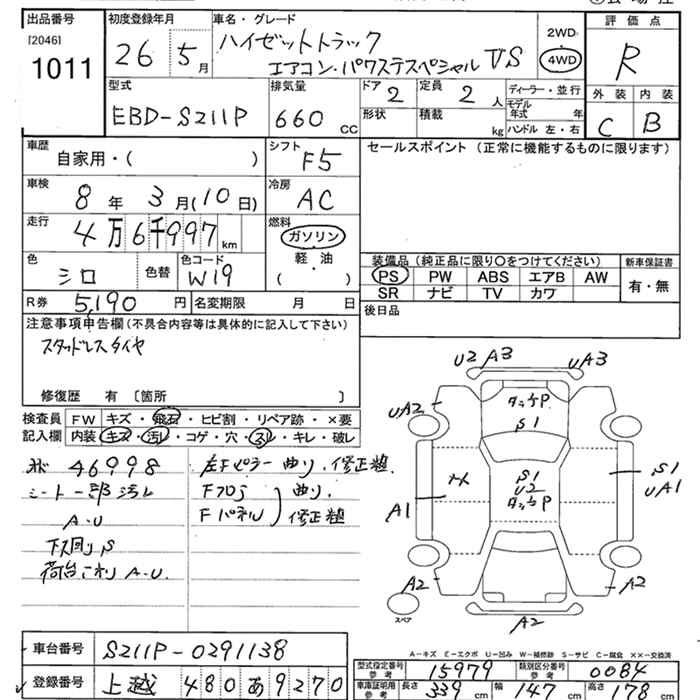 出品番号
[2046]
1011
初度登録年月
26 5月
車名・グレード
ハイゼットトラック
エアコン・パワステスペシャル VS
2WD
4WD
評価点
R
外装 内装
C B
型式
EBD-S211P
排気量
660 CC
ドア
2
定員
2 人
形状
積載
kg
ディーラー・並行
モデル年式 年
ハンドル 左・右
車歴
自家用・( )
シフト
F5
セールスポイント (正常に機能するものに限ります)
車検
8年 3月(10日)
冷房
AC
走行
4万6千997km
燃料
ガソリン
軽・油
( )
色
シロ
色替
色コード
W19
装備品 (純正品に限り○をつけてください)
PS PW ABS エアB AW
SR ナビ TV カワ
新車保証書
有・無
R券 5,190円
名変期限 月 日
後日品
注意事項申告欄 (不具合内容等は具体的に記入して下さい)
スタッドレスタイヤ
修復歴 有 〔箇所 〕
検査員記入欄
FW キズ・飛石・ヒビ割・リペア跡・×要
内装 キズ・汚レ・コゲ・穴・スレ・キレ・破レ
46998
シート一部汚レ
A・U
下廻りS
荷台こすりA・U
左Fピラー曲り、修正歴
Fフロア 曲り、
Fパネル 修正歴
U2 A3 UA3
UA2
タッチP
S1
S1
U2
タッチP
S1
UA1
A1
A2
A2
A2
スペア
A-キズ E-エクボ U-凹み W-補修跡 S-サビ C-腐食 ××-交換済
車台番号 S211P-0291138
登録番号 上越 480 あ 9270
型式指定番号 参考 15979
類別区分番号 参考 0084
車庫証明用 参考 長さ 339cm 幅 147cm 高さ 178cm